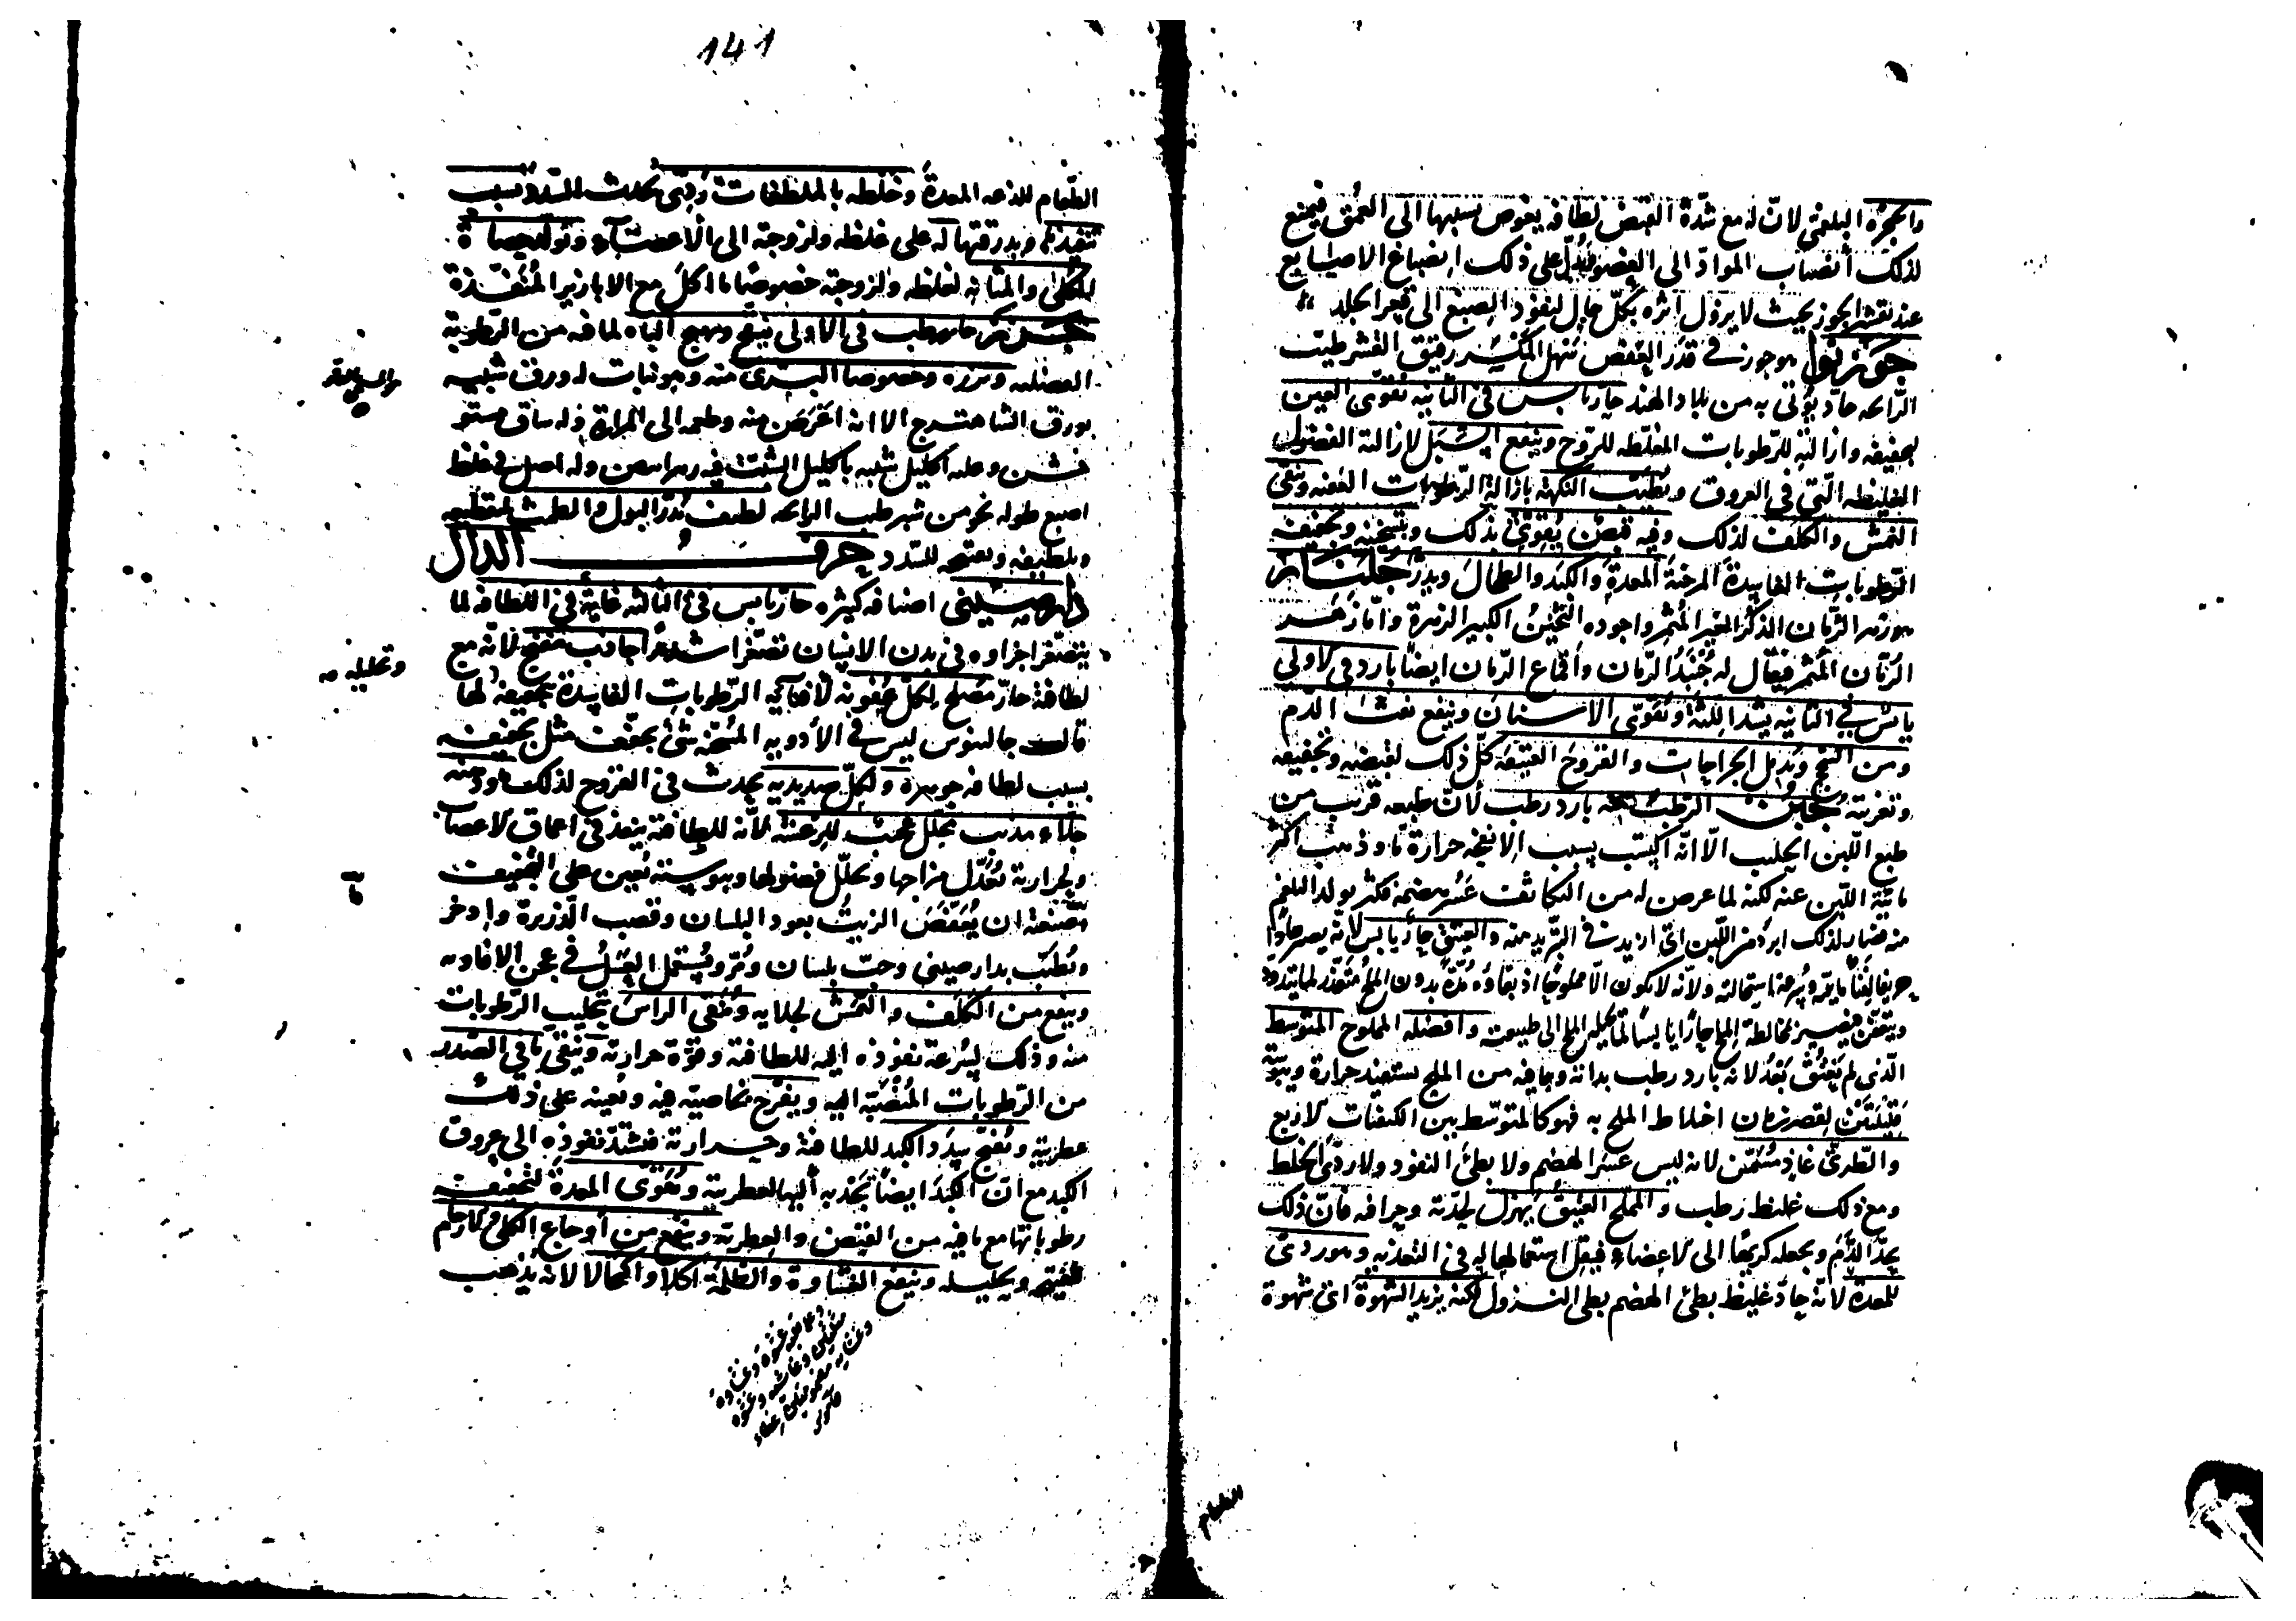 والحجره البلغمى لانّ له مع شدّة القبض لطافه يغوص بسببها الى العمق فيمنع
لذلك انصباب الموادّ الى العضو ويدلّ على ذلك انصباغ الاصابع
عند تقشير الجوز بحيث لا يزول اثره بكلّ حال لنفوذ الصبغ الى قعر الجلد
جوزبوا هو جوز فى قدر العفص سهل المكسر رقيق القشر طيّب
الرّائحه حادّ يؤتى به من بلاد الهند حار يابس فى الثانيه يقوّى العين
بتجفيفه وازالته للرّطوبات المغلّظه للروح وينفع السّبل لازالته الفضول
الغليظه الّتى فى العروق ويطيّب النكهة بازالة الرطوبات العفنه وينقى
النمش والكلف لذلك وفيه قبض يقوّى بذلك وبتسخينه وتجفيفه
الرّطوبات الفاسدة المرخية المعدة والكبد والطحال ويدرّ جلنار
هو زهر الرّمان الذكر الغير المثمر واجوده الكبير الزهرة وامّا زهر
الرّمان المثمر فيقال له جنبد الرّمان واقماع الرّمان ايضا بارد فى الاولى
يابس فى الثانيه يشد اللثة ويقوّى الاسنان وينفع نفث الدّم
ومن السّحج ويدمل الجراحات والقروح العتيقة كلّ ذلك لقبضه وتجفيفه
وتغريته جبن الرّطب منه بارد رطب لانّ طبعه قريب من
طبع اللّبن الحليب الّا انّه اكتسب بسبب الانفحه حرارة مّا وذهب اكثر
مائيّة اللّبن عنه لكنه لما عرض له من التكاثف عسر هضمه فكثر تولد البلغم
منه فصار لذلك ابرد من اللّبن اى ازيد فى التّبريد منه والعتيق حارّ يابس لانّه يصير حادّا
حريفا لفناء مائيّته وسرعة استحالته ولانّه لا يكون الّا مملوحا اذ بقاؤه مدّة بدون الملح متعذّر لما يتدود
ويتعفّن فيصير بمخالطة الملح حارّا يابسا لما يحيله الملح الى طبيعته وافضله المملوح المتوسط
الّذى لم يعتق بعد لانه بارد رطب بذاته وبما فيه من الملح يستفيد حرارة ويبوسة
قليلتين لقصر زمان اختلاط الملح به فهو كالمتوسّط بين الكيفيات الاربع
والطّرىّ غاذ مسمّن لانه ليس عسر الهضم ولا بطئ النفوذ ولا ردىّ الخلط
ومع ذلك غليظ رطب والمملّح العتيق يهزل لحدّته وحرافته فانّ ذلك
يحدّ الدّم ويجعله كريها الى الاعضاء فيقل استعمالها له فى التغذيه وهو ردئ
للمعدة لانّه حادّ غليظ بطئ الهضم بطى النزول لكنه يزيد الشهوة اى شهوة
الطعام
141
الطّعام للذعه المعدة وخلطه بالملطفات ردىّ يحدث السّدد بسبب
تنفيذها وبدرقتها له على غلظه ولزوجته الى الاعضاء وتولّد حصاة
الكلى والمثانه لغلظه ولزوجته خصوصا اذا اكل مع الابازير المنفّذة
جزر حار رطب فى الاولى ينفخ ويهيج الباه لما فيه من الرّطوبة
الفضليه وبزره وخصوصا البرّى منه وهو نبات له ورق شبيه
بورق الشاهترج الا انه اعرض منه وطعمه الى المرارة وله ساق مستو
خشن وعليه اكليل شبيه باكليل الشبت فيه زهر ابيض وله اصل فى غلظ
اصبع طوله نحو من شبر طيب الرائحه لطيف يدرّ البول والطمث لتقطيعه
وتلطيفه وتفتيحه للسّدد حرف الدال
دارصينى اصنافه كثيره حار يابس فى الثالثه غاية فى اللطافه لما
يتصغّر اجزاوه فى بدن الانسان تصغّرا شديدا جاذب مفتح لانّه مع
لطافته حارّ مصلح لكل عفونه لافنائه الرّطوبات الفاسدة بتجفيفه لها
قال جالينوس ليس فى الأدويه المسخّنه شئ يجفّف مثل تجفيفه
بسبب لطافه جوهره ولكلّ صديديه تحدث فى القروح لذلك ودهنه
جلّاء مذيب محلّل عجيب للرّعشة لانّه للطافته ينفذ فى اعماق الاعصاب
وبحرارته يعدّل مزاجها ويحلّل فضولها ويبوسته تعين على التجفيف
صنعته ان يعفّص الزيت بعود البلسان وقصب الذّريرة واذخر
ويطيّب بدارصينى وحبّ بلسان ومرّ ويستعمل العسل فى عجن الافاويه
وينفع من الكلف والنمش لجلايه وينقى الراس بتحليب الرّطوبات
منه وذلك لسرعة نفوذه اليه للطافته وقوّة حرارته وينقى ما فى الصدر
من الرّطوبات المنصّبة اليه ويفرّح بخاصيّة فيه وتعينه على ذلك
عطريته ويفتح سدد الكبد للطافته وحرارته فيشتدّ نفوذه الى عروق
الكبد مع انّ الكبد ايضا تجذبه اليها لعطريته ويقوّى المعدة لتجفيفه
رطوباتها مع ما فيه من القبض والعطرية وينفع من اوجاع الكلى والارحام
لتفتيحه وتحليله وينفع الغشاوة والظلمة اكلا واكتحالا لانه يذهب
وتحليله صح